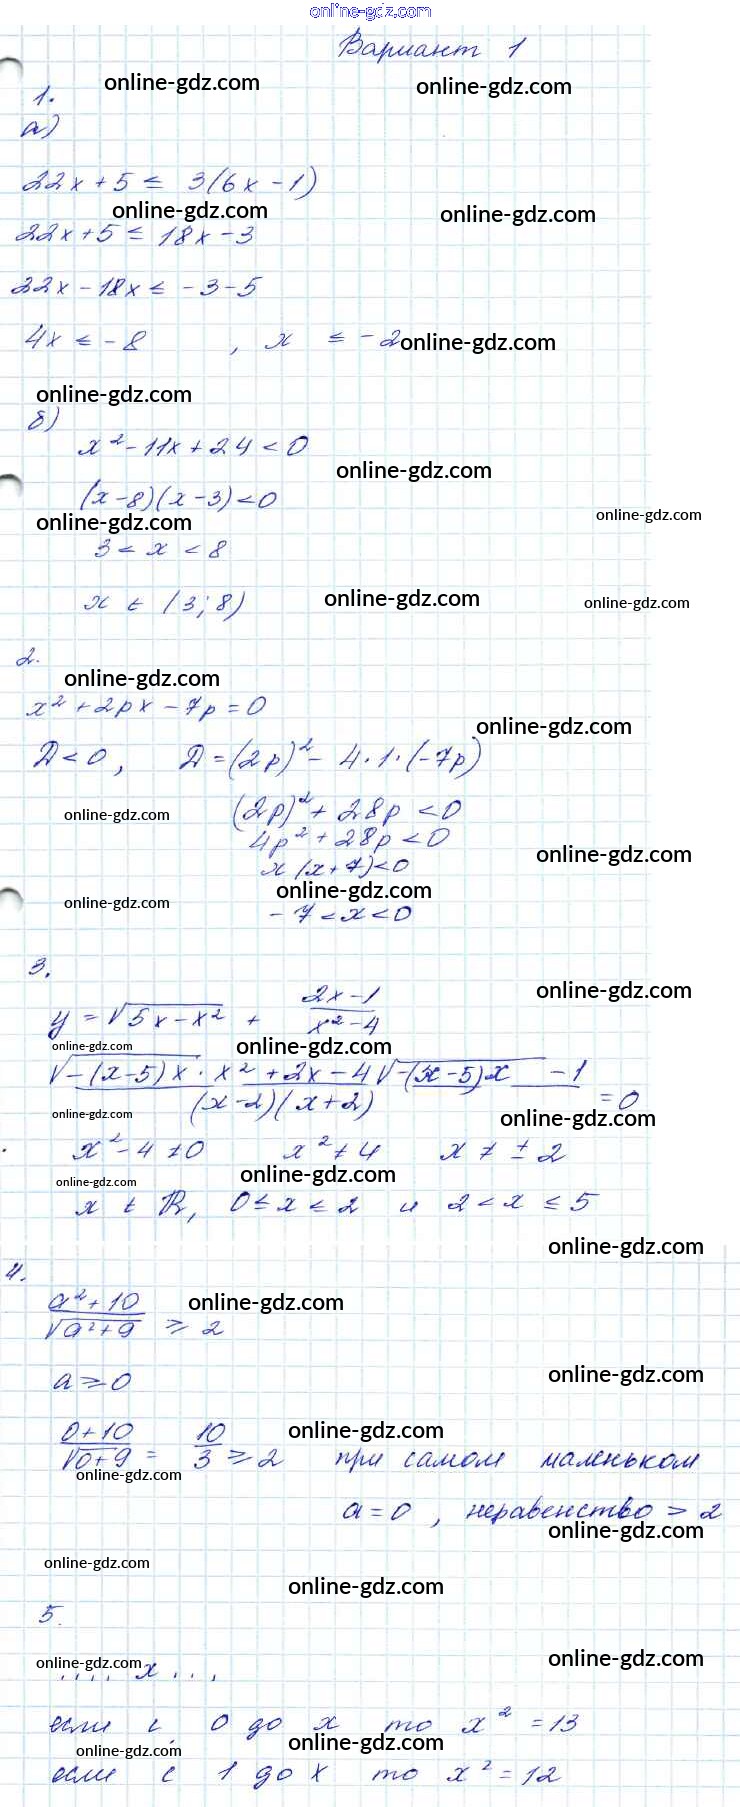 online-gdz.com
Вариант 1
online-gdz.com
online-gdz.com
1.
а)
22x + 5 ≤ 3(6x - 1)
online-gdz.com
online-gdz.com
22x + 5 ≤ 18x - 3
22x - 18x ≤ -3 - 5
4x ≤ -8 , x ≤ -2
online-gdz.com
online-gdz.com
б)
x² - 11x + 24 < 0
online-gdz.com
(x - 8)(x - 3) < 0
online-gdz.com
online-gdz.com
3 < x < 8
x ∈ (3; 8)
online-gdz.com
online-gdz.com
2.
online-gdz.com
x² + 2px - 7p = 0
online-gdz.com
D < 0, D = (2p)² - 4·1·(-7p)
(2p)² + 28p < 0
online-gdz.com
4p² + 28p < 0
online-gdz.com
x(x + 7) < 0
online-gdz.com
online-gdz.com
-7 < x < 0
3.
online-gdz.com
y = √(5x - x²) + (2x - 1)/(x² - 4)
online-gdz.com
online-gdz.com
(√(-(x-5)x) · x² + 2x - 4√(-(x-5)x) - 1)/((x-2)(x+2)) = 0
online-gdz.com
online-gdz.com
x² - 4 ≠ 0 x² ≠ 4 x ≠ ± 2
online-gdz.com
online-gdz.com
x ∈ R, 0 ≤ x ≤ 2 и 2 < x ≤ 5
online-gdz.com
4.
(a² + 10)/√(a² + 9) ≥ 2
online-gdz.com
a ≥ 0
online-gdz.com
(0 + 10)/√(0 + 9) = 10/3 ≥ 2 при самом маленьком
online-gdz.com
online-gdz.com
a = 0, неравенство > 2
online-gdz.com
online-gdz.com
online-gdz.com
5.
online-gdz.com
online-gdz.com
.... x ...
если с 0 до x то x² = 13
online-gdz.com
online-gdz.com
если с 1 до x то x² = 12